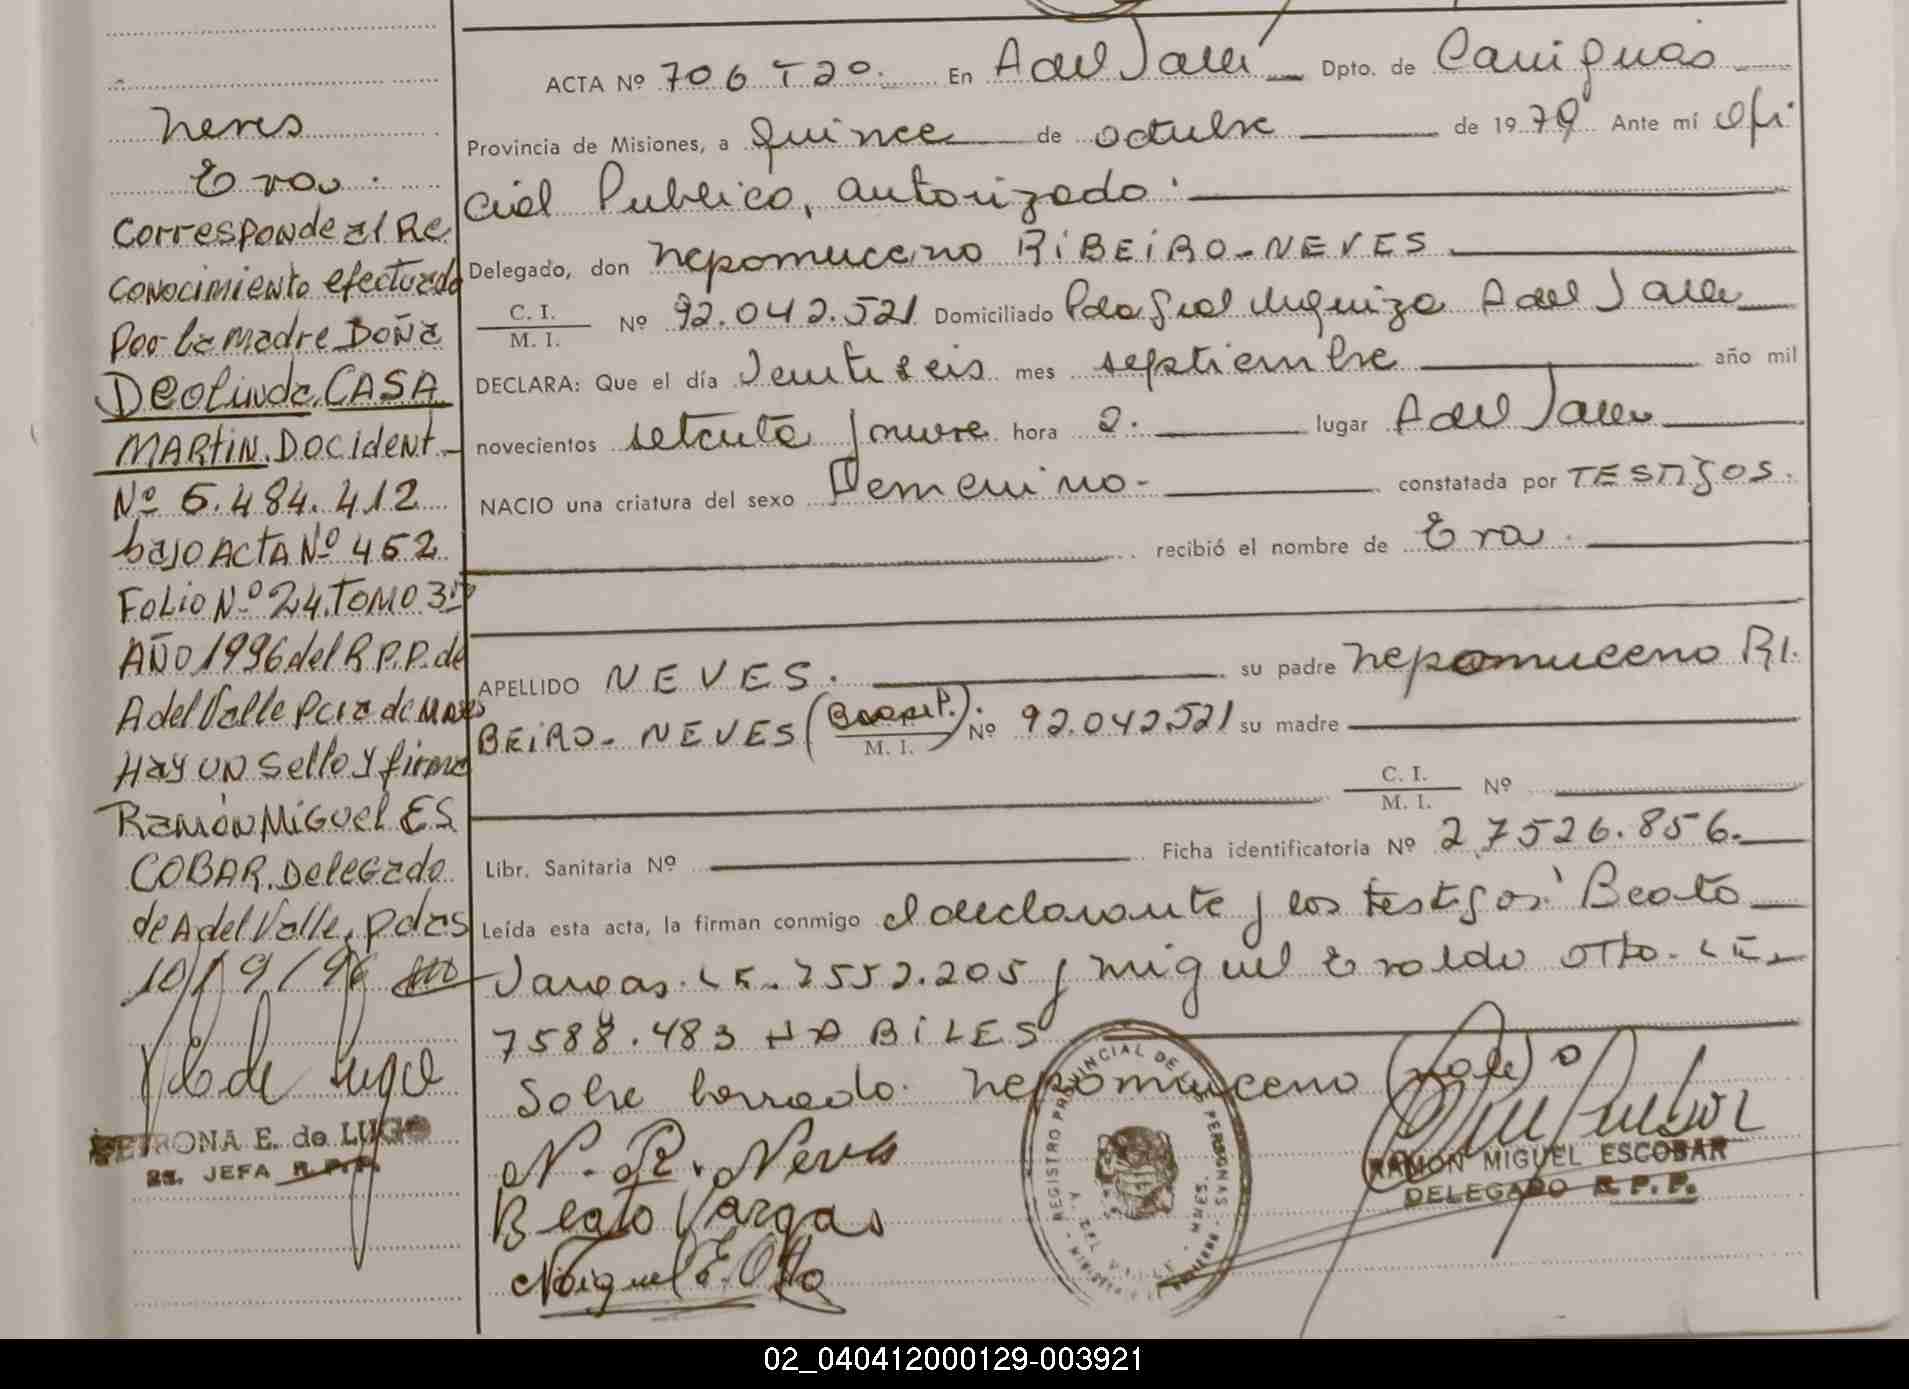 Neves
Eva.
Corresponde al Re
conocimiento efectuado
Por la madre DOÑA
Deolinda CASA
MARtiN. Doc ident.
Nº 5.484.412
bajo Acta Nº 452
Folio Nº 24. TOMO 3º
AÑO 1996 del R.P.P. de
A del Valle
Hay un sello y firma
Ramón Miguel ES
COBAR. Delegado
de A del Valle, pdas
10/9/96
PETRONA E. de LUGO
JEFA R.P.P.
ACTA Nº 706 T 2º. En A del Valle Dpto. de Cainguás
Provincia de Misiones, a quince de octubre de 1979 Ante mí Ofi
cial Publico, autorizado:
Delegado, don Nepomuceno RIBEIRO-NEVES
C. I.
M. I. Nº 92.042.521 Domiciliado Pdo Gral Urquiza A del Valle
DECLARA: Que el día Veintiseis mes septiembre año mil
novecientos setenta y nueve hora 2. lugar A del Valle
NACIO una criatura del sexo Femenino- constatada por TESTIGOS.
recibió el nombre de Eva.
APELLIDO NEVES. su padre Nepomuceno RI.
BEIRO-NEVES M. I. Nº 92.042.521 su madre
C. I.
M. I. Nº
Libr. Sanitaria Nº Ficha identificatoria Nº 27526.856.
Leída esta acta, la firman conmigo el declarante y los testigos: Beato
Vargas. LE. 7552.205 y Miguel Evaldo Otto. LE.
7588.483 HABILES
Sobre borrado. Nepomuceno (vale)
N. R. Neves
Beato Vargas
Miguel E. Otto
REGISTRO PROVINCIAL DE LAS PERSONAS
A. DEL VALLE
RAMON MIGUEL ESCOBAR
DELEGADO R.P.P.
02_040412000129-003921